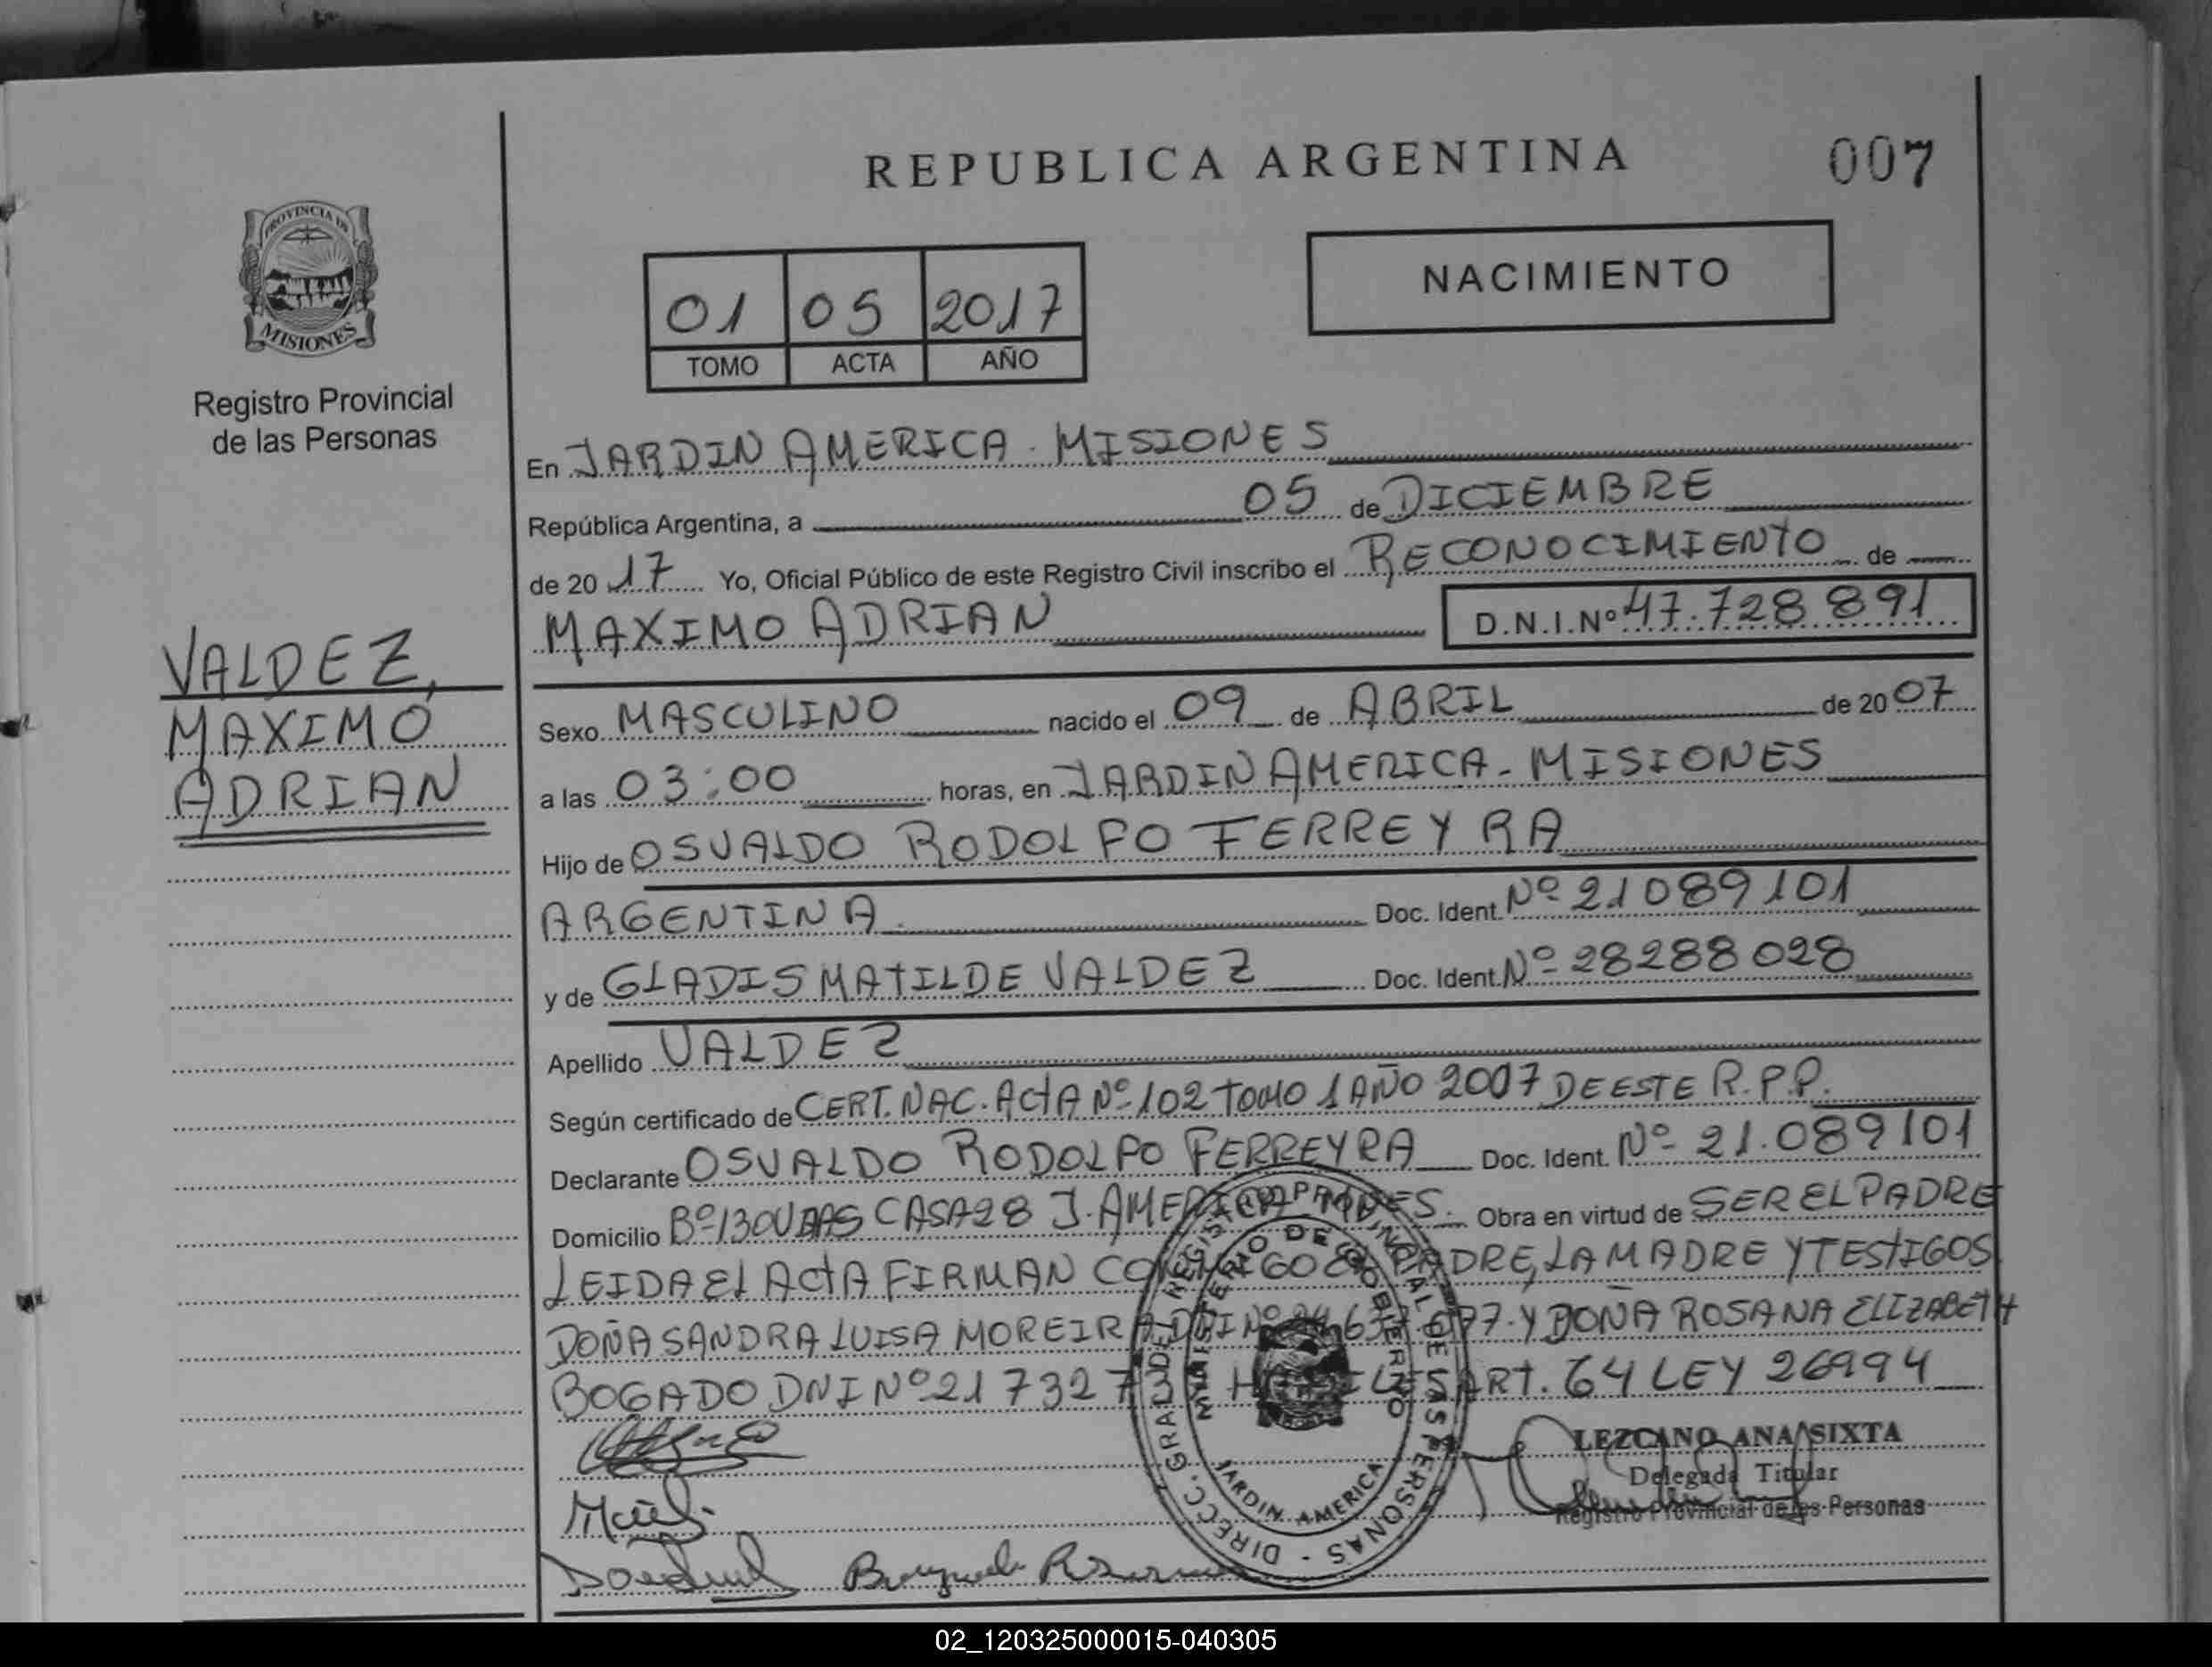 REPUBLICA ARGENTINA
007
PROVINCIA DE
MISIONES
Registro Provincial
de las Personas
01 05 2017
TOMO ACTA AÑO
NACIMIENTO
En JARDIN AMERICA - MISIONES
República Argentina, a 05 de DICIEMBRE
de 20 17 Yo, Oficial Público de este Registro Civil inscribo el RECONOCIMIENTO de
MAXIMO ADRIAN D.N.I.Nº 47.728 891
VALDEZ,
MAXIMO
ADRIAN
Sexo MASCULINO nacido el 09 de ABRIL de 20 07
a las 03:00 horas, en JARDIN AMERICA - MISIONES
Hijo de OSVALDO RODOLFO FERREYRA
ARGENTINA. Doc. Ident. Nº 21089101
y de GLADIS MATILDE VALDEZ Doc. Ident. Nº 28288028
Apellido VALDEZ
Según certificado de CERT. NAC. ACTA Nº 102 TOMO 1 AÑO 2007 DE ESTE R.P.P.
Declarante OSVALDO RODOLFO FERREYRA Doc. Ident. Nº 21.089101
Domicilio Bº 130 CASA 28 J. AMERICA Obra en virtud de SER EL PADRE
LEIDA EL ACTA FIRMAN PADRE, LA MADRE Y TESTIGOS
DOÑA SANDRA LUISA MOREIRA DNI Nº Y DOÑA ROSANA ELIZABETH
BOGADO DNI Nº ART. 64 LEY 26994
DIRECC. GRAL. DEL REGISTRO PROVINCIAL DE LAS PERSONAS
MINISTERIO DE GOBIERNO
JARDIN AMERICA
LEZCANO ANA SIXTA
Delegada Titular
Registro Provincial de las Personas
02_120325000015-040305